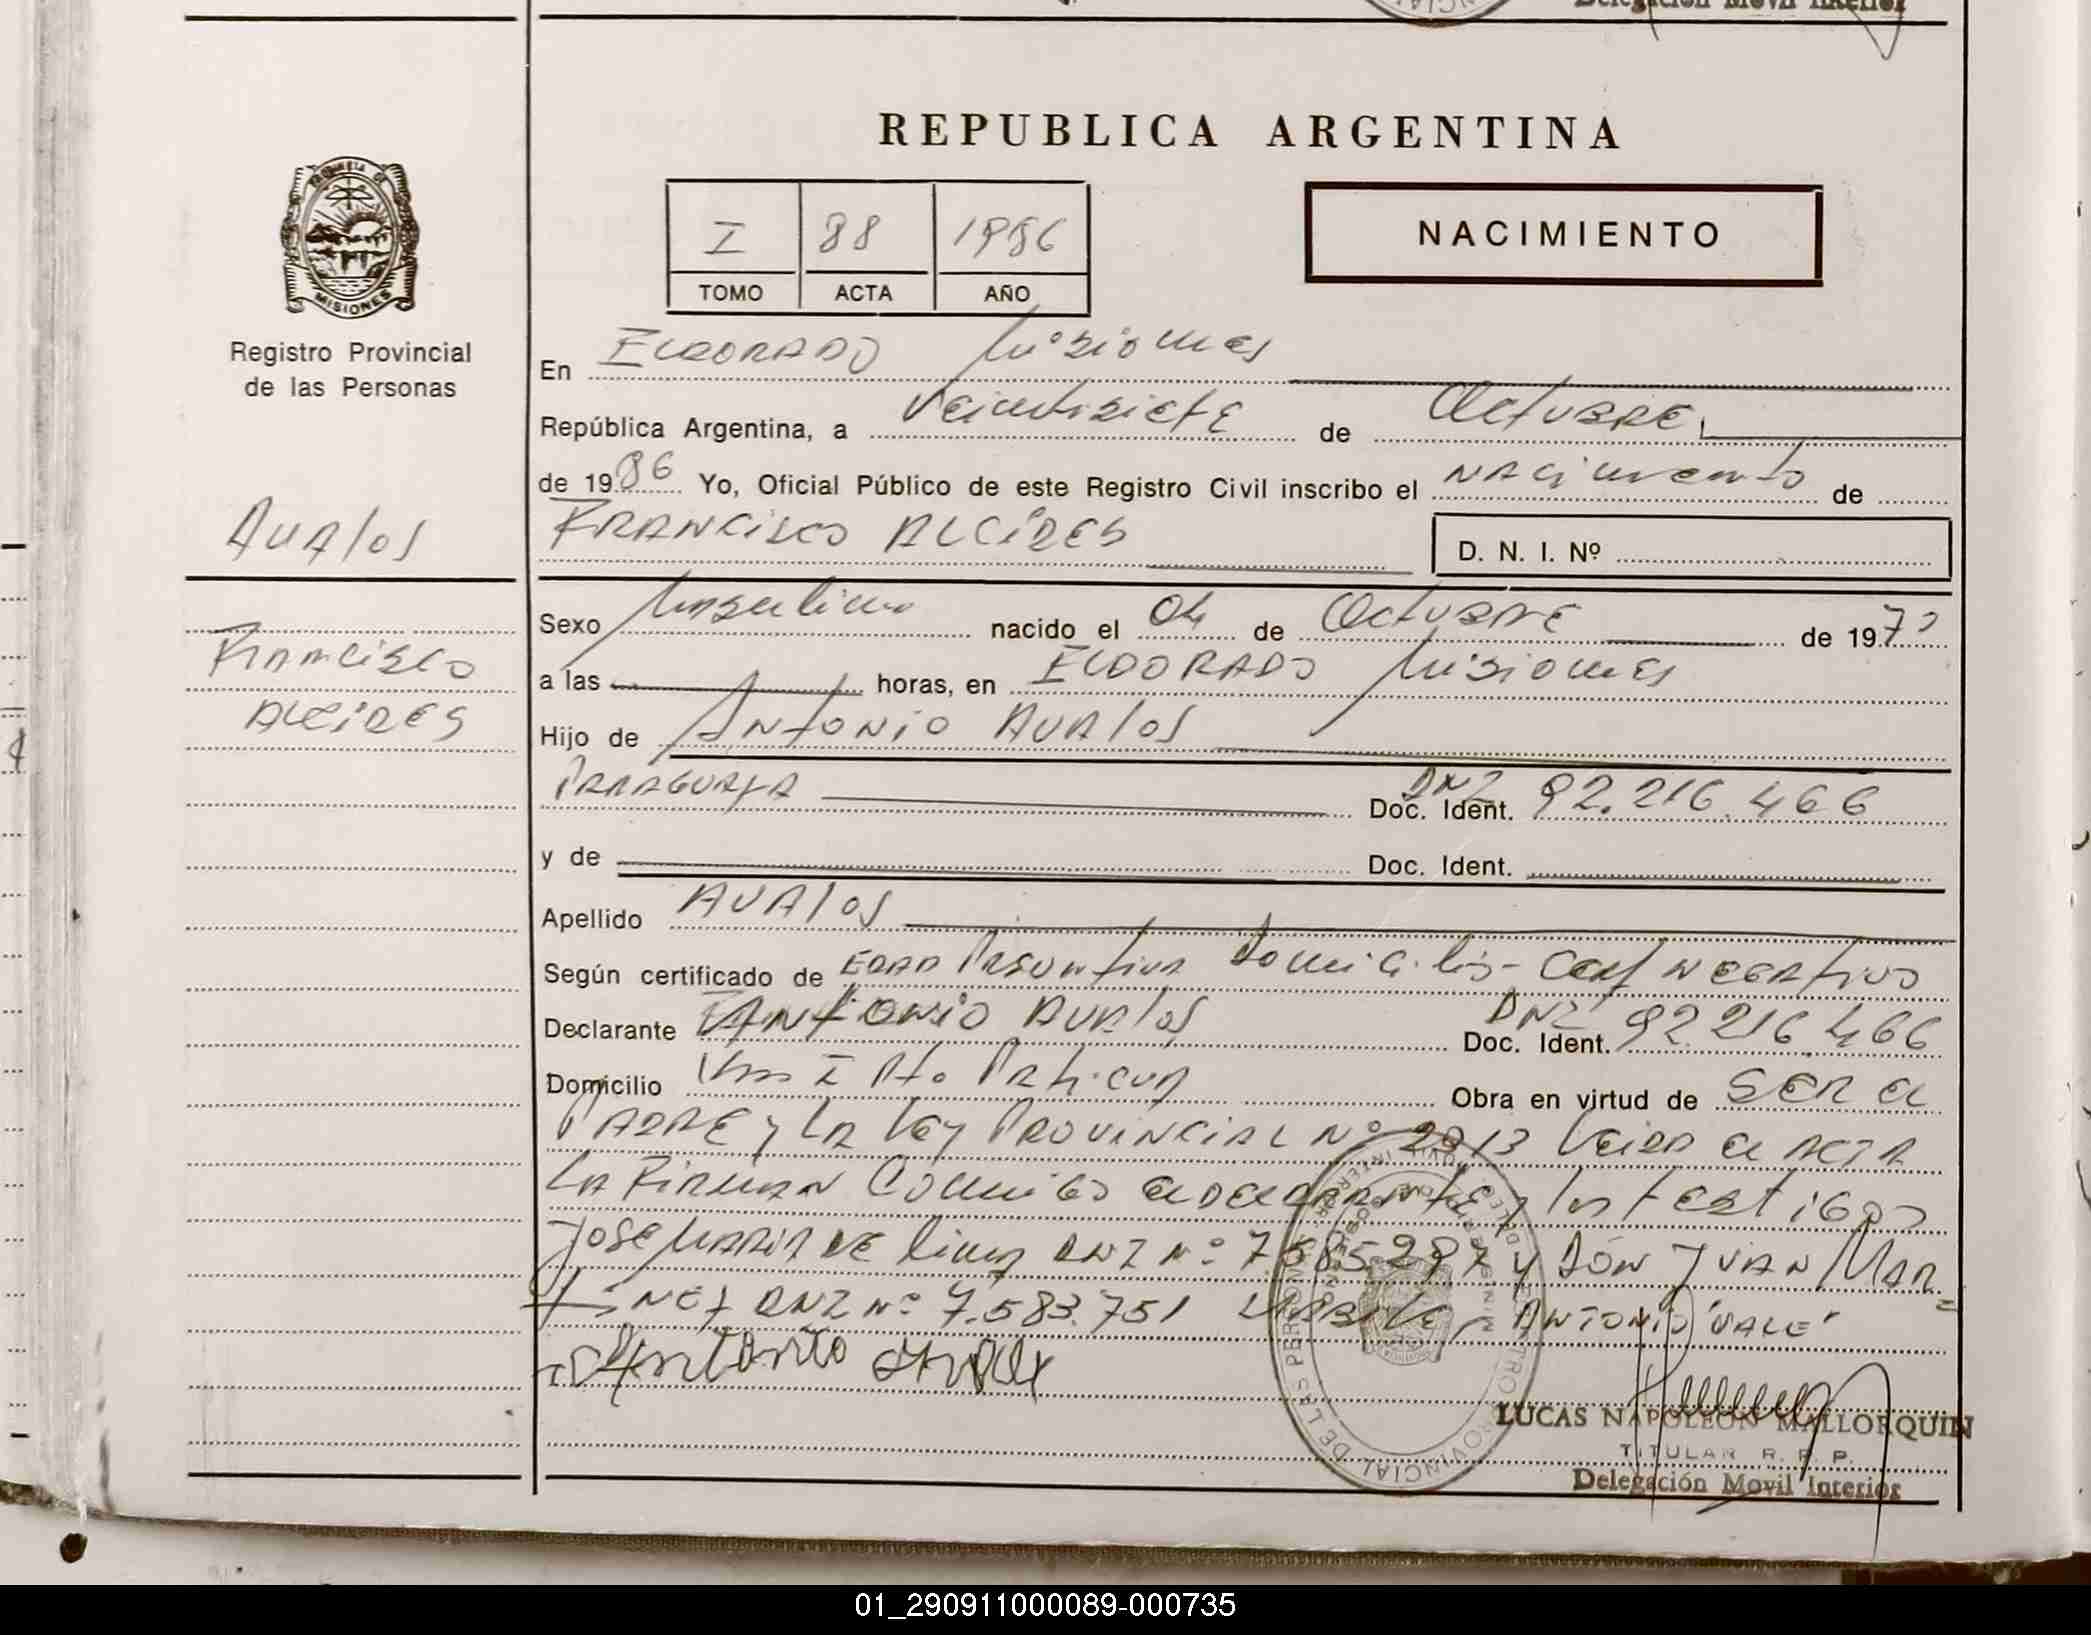 Delegación Movil Interior
REPUBLICA ARGENTINA
I 88 1986
TOMO ACTA AÑO
NACIMIENTO
PROVINCIA DE
MISIONES
Registro Provincial
de las Personas
En ELDORADO Misiones
República Argentina, a Veintisiete de Octubre
de 1986 Yo, Oficial Público de este Registro Civil inscribo el NACimiento de
AVAlos
FRANCisco ALCiDES
D. N. I. Nº
Sexo Masculino nacido el 04 de Octubre de 1970
FRANCisco
a las horas, en ELDORADO Misiones
ALCiDES
Hijo de ANTONiO AVAlos
PARAGUAYA Doc. Ident. DNI 92.216.466
y de Doc. Ident.
Apellido AVAlos
Según certificado de EDAD PRESUNTIVA Domicilio - Cert NEGATIVO
Declarante ANTONiO AVAlos Doc. Ident. DNI 92.216.466
Domicilio Km I Pto. Obra en virtud de SER el
PADRE y LA Ley PROVINCIAL Nº 2913 Leida el ACTA
LA FIRMAN Conmigo el DECLARANTE y los testigos
JOSE MARIA DE Lima DNI Nº 7.585.297 y DON JUAN MAR=
TiNEZ DNI Nº 7.583.751 ANTONIO "VALE"
Antonio
LUCAS NAPOLEON MALLORQUIN
TITULAR R. P. P.
Delegación Movil Interior
01_290911000089-000735